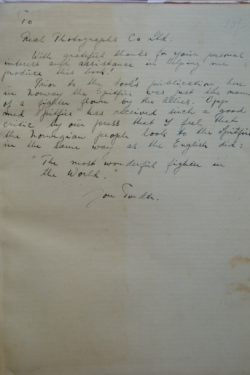 To
Real Photographs Co Ltd.
With grateful thanks for your
assistance in helping me
produce this book!
Prior to the book's publication here
in Norway the Spitfire was just the name
of a fighter flown by the Allies.
Spitfire" has received such a good
by our press that I feel that
the Norwegian people look to the Spitfire
in the same way as the English did:
"The most wonderful fighter in
the World."